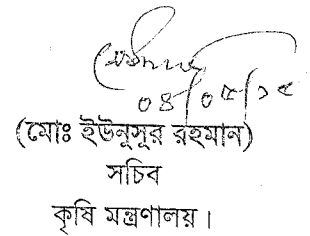 ০৪/০৫/১৫
(মোঃ ইউনুসুর রহমান)
সচিব
কৃষি মন্ত্রণালয়।